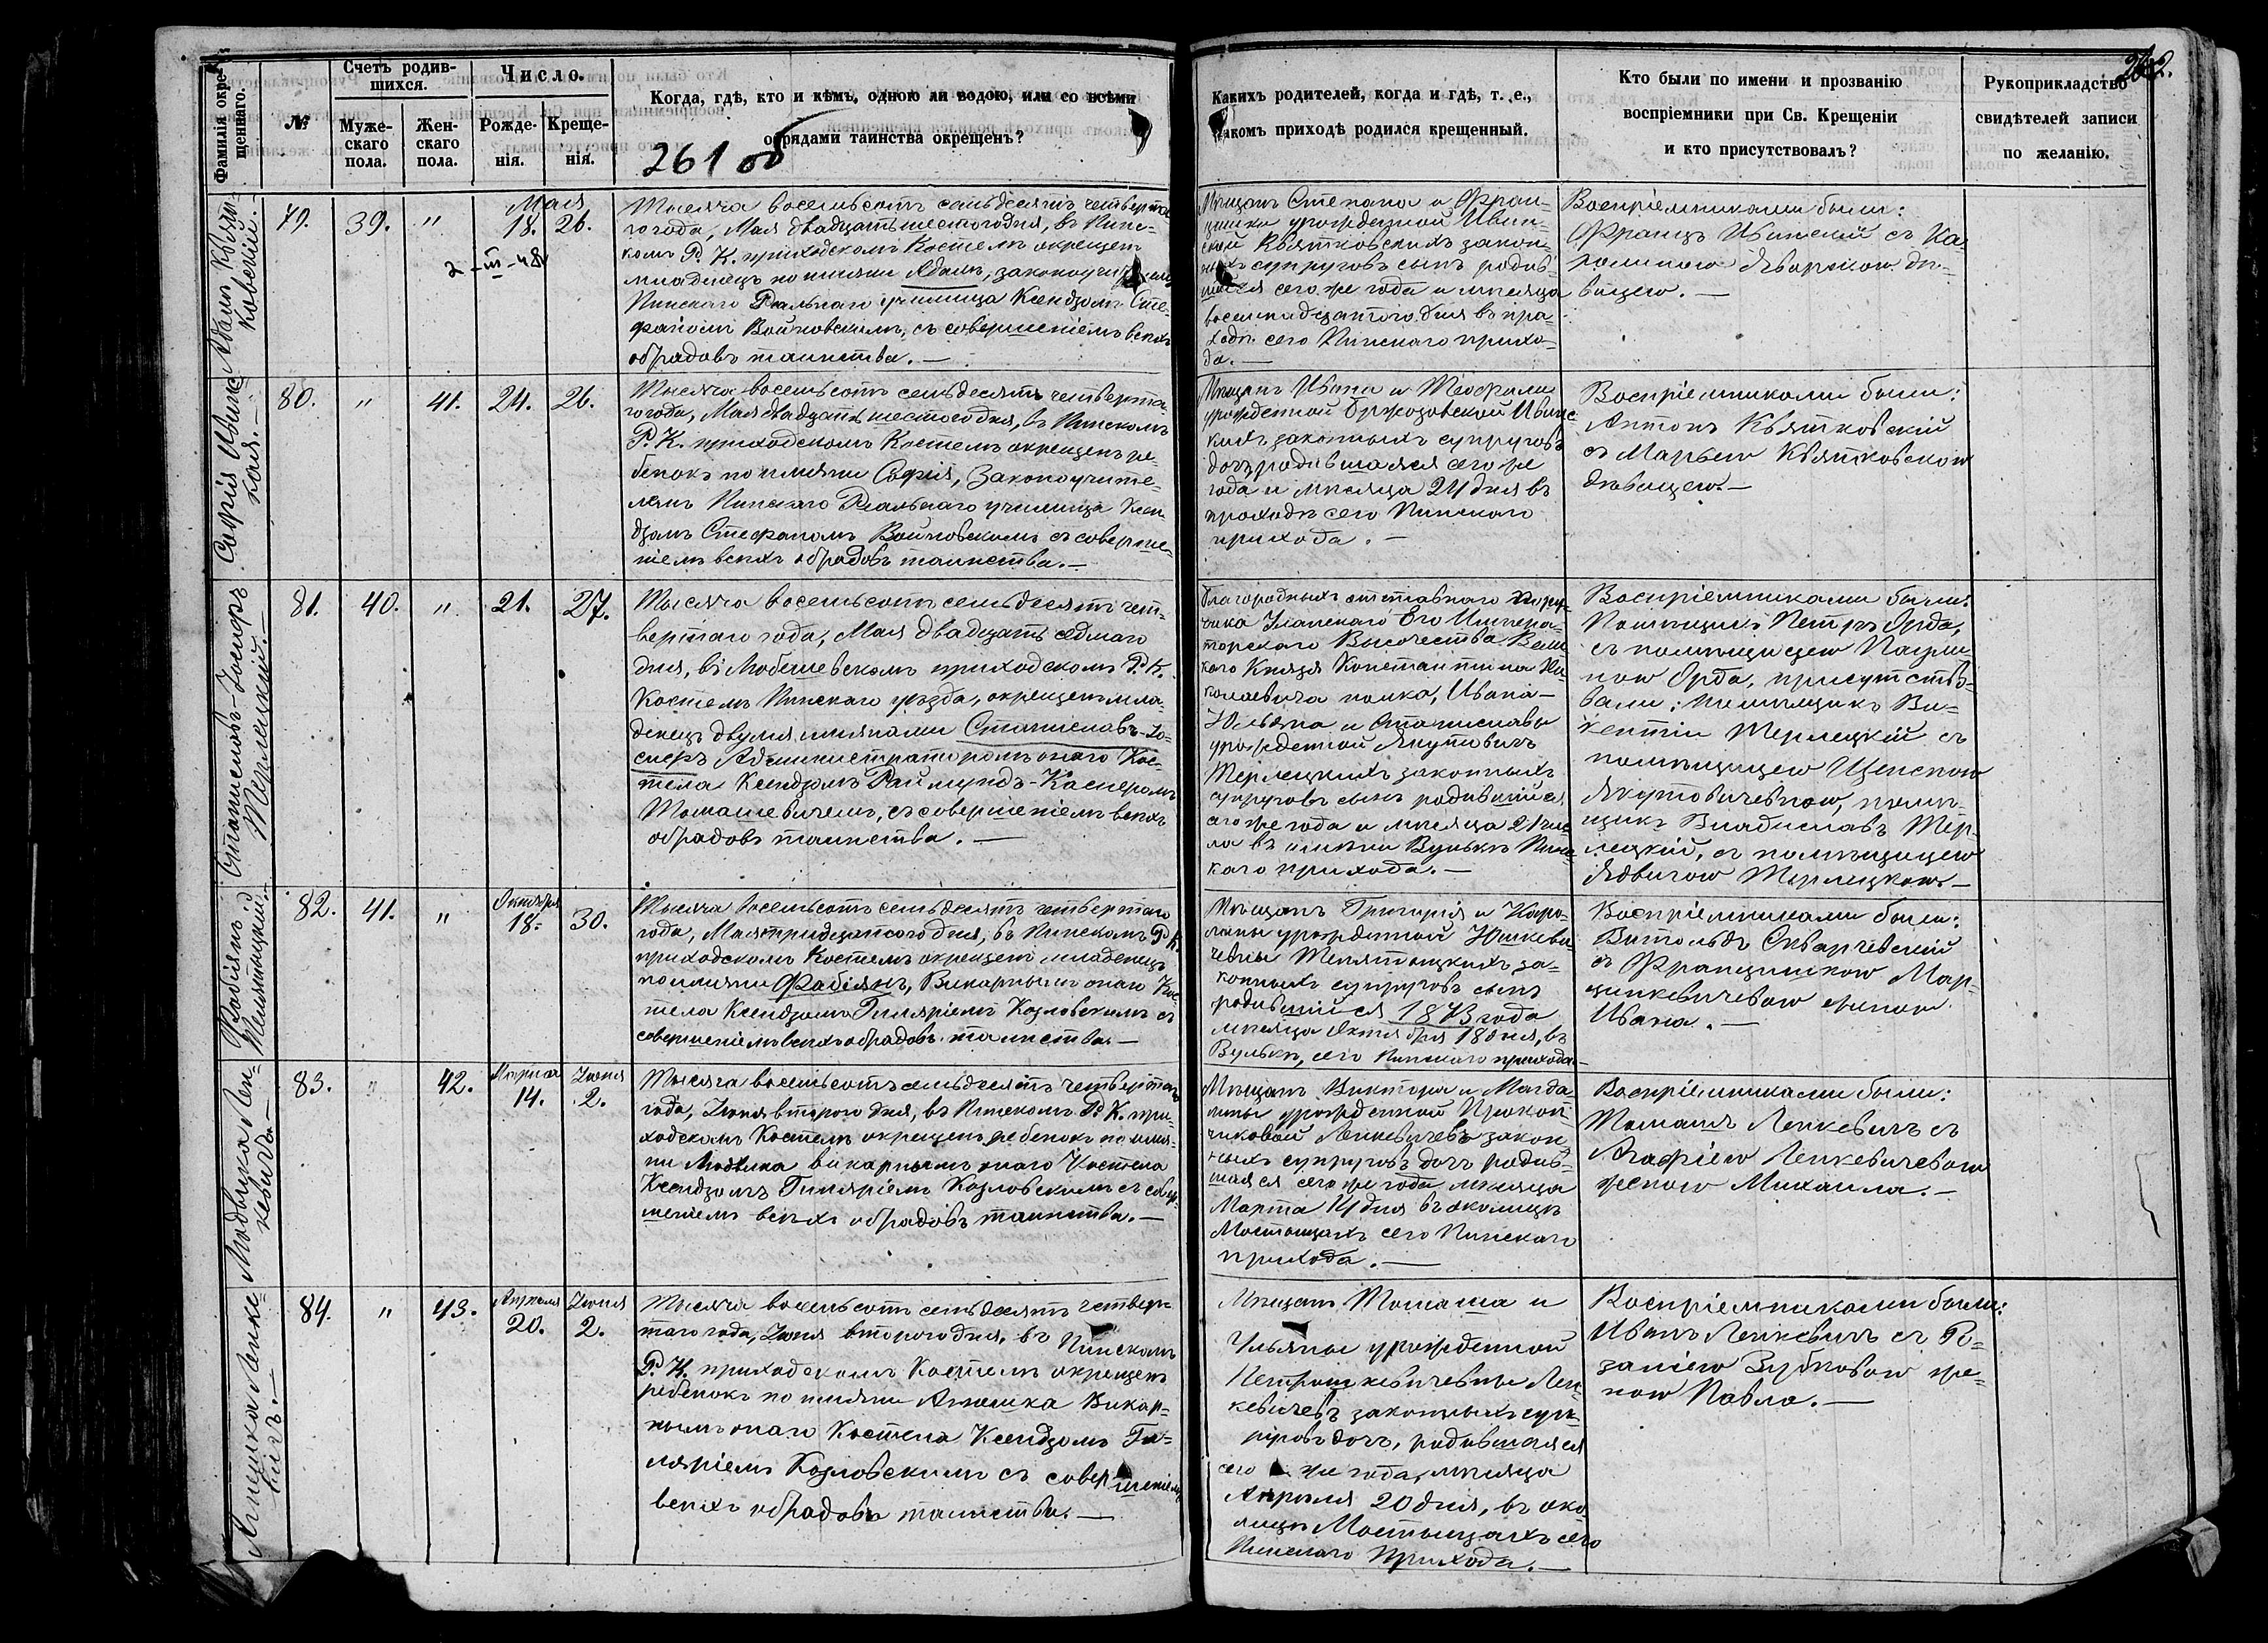 Фамилія окре-
щеннаго.
№
Счетъ родив-
шихся.
Муже-
скаго
пола.
Жен-
скаго
пола.
Число.
Рожде-
нія.
Креще-
нія.
Когда, гдѣ, кто и кѣмъ, одною ли водою, или со всѣми
обрядами таинства окрещенъ?
261 об
Адамъ Квят-
ковскій.
79.
39.
"
Мая
18. 26.
2-III-48
Тысяча восемьсотъ семьдесятъ четверта
го года, Мая двадцать шестого дня, въ Пинс-
комъ Р. К. приходскомъ Костелѣ окрещенъ
младенецъ по имени Адамъ, законоучителемъ
Пинскаго Реальнаго училища Ксендзомъ Сте-
фаномъ Войновскимъ, съ совершеніемъ всѣхъ
обрядовъ таинства. —
Софія Ивинс
кая. —
80.
"
41.
24.
26.
Тысяча восемьсотъ семьдесятъ четверта-
го года, Мая двадцать шестого дня, въ Пинскомъ
Р. К. приходскомъ Костелѣ окрещенъ ре-
бенокъ по имени Софія, Законоучите-
лемъ Пинскаго Реальнаго училища Ксен
дзомъ Стефаномъ Войновскимъ съ соверше-
ніемъ всѣхъ обрядовъ таинства. —
Станиславъ-Іосифъ
Терлецкій. —
81.
40.
"
21.
27.
Тысяча восемьсотъ семьдесятъ чет-
вертаго года, Мая двадцать седмаго
дня, въ Любешевскомъ приходскомъ Р. К.
Костелѣ Пинскаго уѣзда, окрещенъ мла-
денецъ двумя именами Станиславъ-Іо-
сифъ Администраторомъ онаго Кос-
тела Ксендзомъ Раймундъ-Касперомъ
Томашевичемъ, съ совершеніемъ всѣхъ
обрядовъ таинства. —
Фабіянъ
82.
41.
"
Октября
18.
30.
Тысяча восемьсотъ семьдесятъ четвертаго
года, Мая тридцатого дня, въ Пинскомъ Р. К.
приходскомъ Костелѣ окрещенъ младенецъ
по имени Фабіянъ, Викарнымъ онаго Кос-
тела Ксендзомъ Гиляріемъ Козловскимъ съ
совершеніемъ всѣхъ обрядовъ таинства. —
Людвика Лен-
кевичъ. —
83.
"
42.
Марта
14.
Іюня
2.
Тысяча восемьсотъ семьдесятъ четвертаго
года, Іюня второго дня, въ Пинскомъ Р. К. при-
ходскомъ Костелѣ окрещенъ ребенокъ по име-
ни Людвика викарнымъ онаго Костела
Ксендзомъ Гиляріемъ Козловскимъ съ совер-
шеніемъ всѣхъ обрядовъ таинства. —
Агнешка Ленке-
вичъ. —
84.
"
43.
Апрѣля
20.
Іюня
2.
Тысяча восемьсотъ семьдесятъ четвер-
таго года, Іюня второго дня, въ Пинскомъ
Р. К. приходскомъ Костелѣ окрещенъ
ребенокъ по имени Агнешка Викар-
нымъ онаго Костела Ксендзомъ Ги-
ляріемъ Козловскимъ съ совершеніемъ
всѣхъ обрядовъ таинства. —
Какихъ родителей, когда и гдѣ, т. е.,
какомъ приходѣ родился крещенный.
Кто были по имени и прозванію
воспріемники при Св. Крещеніи
и кто присутствовалъ?
Рукоприкладство
свидѣтелей записи
по желанію.
262.
Мѣщанъ Степана и Фран-
цишки урожденной Ивин-
ской Квятковскихъ закон-
ныхъ супруговъ сынъ родив-
шійся сего же года и мѣсяца
восемнадцатого дня въ при-
ходѣ сего Пинскаго прихо-
да. —
Воспріемниками были:
Францъ Ивинскій съ Ка-
ролиною Яворскою дѣ-
вицею. —
Мѣщанъ Ивана и Теофили
урожденной Бржозовской Ивинс
кихъ законныхъ супруговъ
дочь родившаяся сего же
года и мѣсяца 24 дня въ
приходѣ сего Пинскаго
прихода. —
Воспріемниками были:
Антонъ Квятковскій
съ Марьею Квятковскою
дѣвицею. —
Благородныхъ отставнаго пору-
чика Уланскаго Его Импера-
торскаго Высочества Вели
каго Князя Константина Ни-
колаевича полка, Ивана-
Юльяна и Станиславы
урожденной Якутовичъ
Терлецкихъ законныхъ
супруговъ сынъ родившійся
сего же года и мѣсяца 21 чис
ла въ имѣніи Вулькѣ Пинс-
каго прихода. —
Воспріемниками были:
Помѣщикъ Петръ Орда,
съ помѣщицею Паули-
ною Орда, присутство-
вали: помѣщикъ Ви-
кентій Терлецкій съ
помѣщицею
Якутовичевною, помѣ-
щикъ Владиславъ Тер-
лецкій, съ помѣщицею
Ядвигою Терлецкою. —
Мѣщанъ Григорія и Каро-
лины урожденной Юшкеви-
чевны за-
конныхъ супруговъ сынъ
родившійся 1873 года
мѣсяца Октября 18 дня, въ
Вулькѣ, сего Пинскаго прихода —
Воспріемниками были:
Витольдъ Скварчевскій
съ Францишкою Мар-
цинкевичевою женою
Ивана. —
Мѣщанъ Виктора и Магда-
лины урожденной Прокоп
чиковой Ленкевичевъ закон
ныхъ супруговъ дочь родив-
шаяся сего же года мѣсяца
Марта 14 дня въ околицѣ
Мостыщахъ сего Пинскаго
прихода. —
Воспріемниками были:
Томашъ Ленкевичъ съ
Агафіею Ленкевичевою
женою Михаила. —
Мѣщанъ Томаша и
Ульяны урожденной
Петрашкевичевны Лен-
кевичевъ законныхъ суп-
руговъ дочь, родившаяся
сего же года, мѣсяца
Апрѣля 20 дня, въ око-
лицѣ Мостыщахъ сего
Пинскаго Прихода. —
Воспріемниками были:
Иванъ Ленкевичъ съ Ро-
заліею Зубковою же-
ною Павла. —